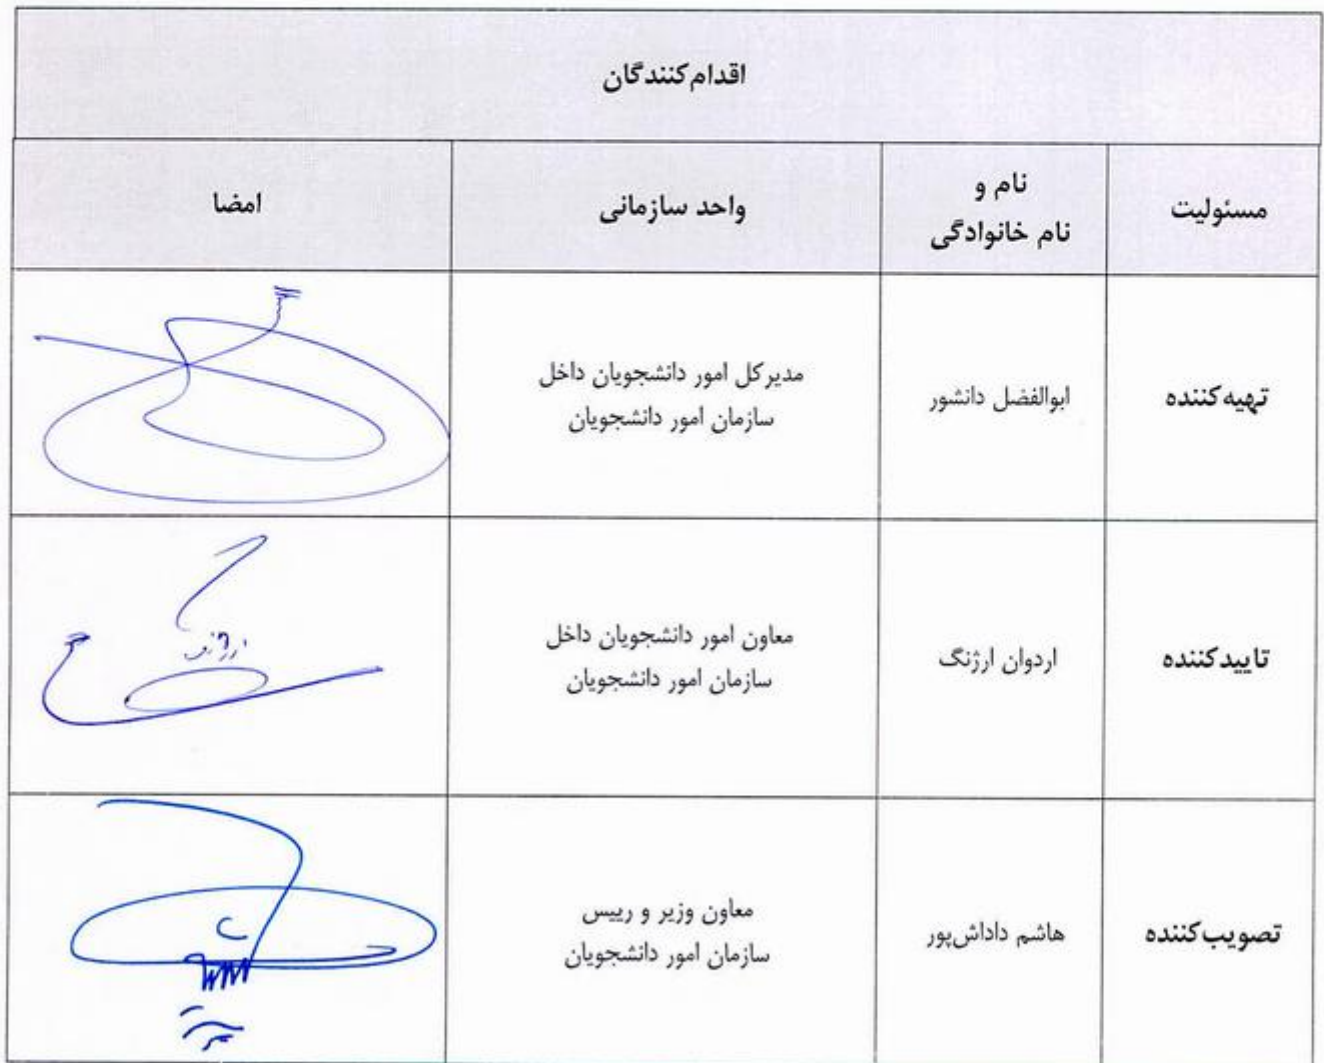 اقدام‌کنندگان
مسئولیت
نام و
نام خانوادگی
واحد سازمانی
امضا
تهیه‌کننده
ابوالفضل دانشور
مدیرکل امور دانشجویان داخل
سازمان امور دانشجویان
تایید‌کننده
اردوان ارژنگ
معاون امور دانشجویان داخل
سازمان امور دانشجویان
تصویب‌کننده
هاشم داداش‌پور
معاون وزیر و رییس
سازمان امور دانشجویان